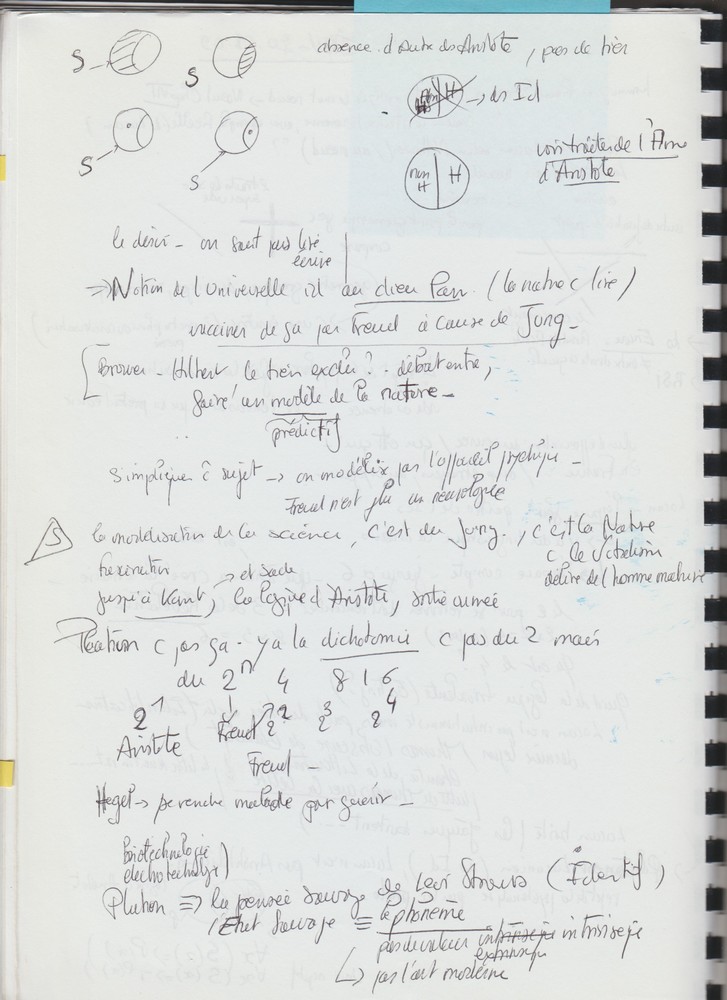 S
S
S
S
absence d'autre ds Aristote, pas de tiers
non H → ds Id
non
H
H
voir traité de l'Ame
d'Aristote
le désir - on sait pas lire
écrire
⇒ Notion de l'Universelle id au dieu Pan (la nature c lire)
vacciner de ça par Freud à cause de Jung -
Brower - Hilbert le tiers exclu? débat entre,
faire un modèle de la nature -
prédictif
S'impliquer c sujet → on modélise pas l'appareil psychique -
Freud n'est plus un neurologue
la modélisation de la science, c'est du Jung, c'est la Nature
c le
délire de l'homme
fascination
→ et Sade
jusqu'à Kant, la logique d'Aristote,
Platon c pas ça - y a la dichotomie c pas du 2 mais
du 2ⁿ 4 8 16
2¹ Freud 2² 2³ 2⁴
Aristote
Freud -
Hegel → malade par guérir -
Biotechnologie
electrotechnique
Platon ≡> la pensée sauvage de Levi Strauss (Identif)
/ Etat Sauvage ≡ le phonème
pas de valeur intrinsèque
extrinsèque
↳ pas l'art moderne